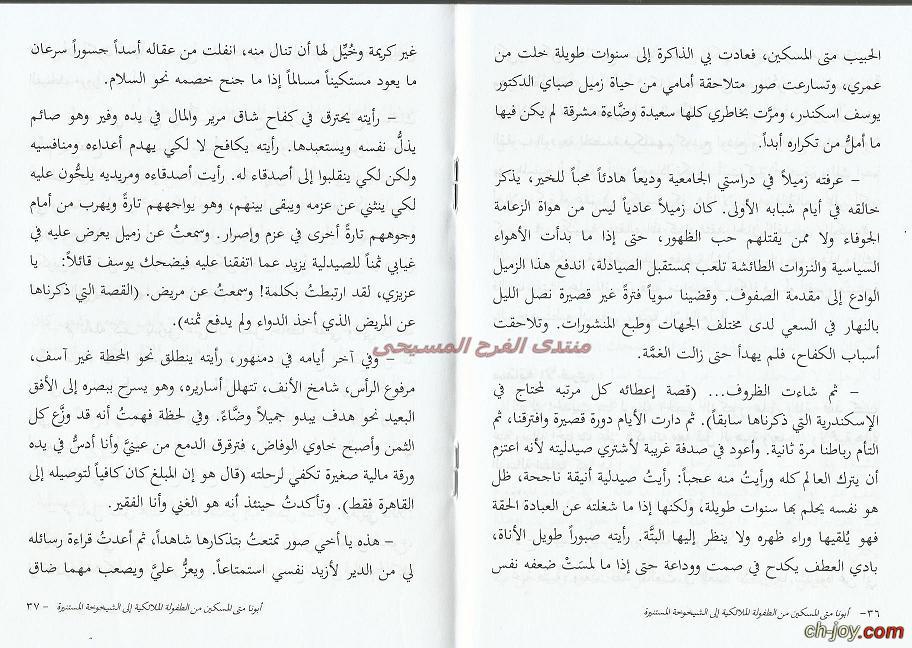 الحبيب متى المسكين، فعادت بي الذاكرة إلى سنوات طويلة خلت من
عمري، وتسارعت صور متلاحقة أمامي من حياة زميل صباي الدكتور
يوسف اسكندر، ومرَّت بخاطري كلها سعيدة وضَّاءة مشرقة لم يكن فيها
ما أملُّ من تكراره أبداً.
– عرفته زميلاً في دراستي الجامعية وديعاً هادئاً محباً للخير، يذكر
خالقه في أيام شبابه الأولى. كان زميلاً عادياً ليس من هواة الزعامة
الجوفاء ولا ممن يقتلهم حب الظهور، حتى إذا ما بدأت الأهواء
السياسية والنزوات الطائشة تلعب بمستقبل الصيادلة، اندفع هذا الزميل
الوادع إلى مقدمة الصفوف. وقضينا سوياً فترةً غير قصيرة نصل الليل
بالنهار في السعي لدى مختلف الجهات وطبع المنشورات. وتلاحقت
أسباب الكفاح، فلم يهدأ حتى زالت الغمَّة.
– ثم شاءت الظروف... (قصة إعطائه كل مرتبه لمحتاج في
الإسكندرية التي ذكرناها سابقاً). ثم دارت الأيام دورة قصيرة وافترقنا، ثم
التأم رباطنا مرة ثانية. وأعود في صدفة غريبة لأشتري صيدليته لأنه اعتزم
أن يترك العالم كله ورأيتُ منه عجباً: رأيتُ صيدلية أنيقة ناجحة، ظل
هو نفسه يحلم بها سنوات طويلة، ولكنها إذا ما شغلته عن العبادة الحقة
فهو يُلقيها وراء ظهره ولا ينظر إليها البتَّة. رأيته صبوراً طويل الأناة،
بادي العطف يكدح في صمت ووداعة حتى إذا ما لمستْ ضعفه نفس
٣٦– أبونا متى المسكين من الطفولة الملائكية إلى الشيخوخة المستنيرة
غير كريمة وخُيِّل لها أن تنال منه، انفلت من عقاله أسداً جسوراً سرعان
ما يعود مستكيناً مسالماً إذا ما جنح خصمه نحو السلام.
– رأيته يحترق في كفاح شاق مرير والمال في يده وفير وهو صائم
يذلُّ نفسه ويستعبدها. رأيته يكافح لا لكي يهدم أعداءه ومنافسيه
ولكن لكي ينقلبوا إلى أصدقاء له. رأيت أصدقاءه ومريديه يلحُّون عليه
لكي ينثني عن عزمه ويبقى بينهم، وهو يواجههم تارةً ويهرب من أمام
وجوههم تارةً أخرى في عزم وإصرار. وسمعتُ عن زميل يعرض عليه في
غيابي ثمناً للصيدلية يزيد عما اتفقنا عليه فيضحك يوسف قائلاً: يا
عزيزي، لقد ارتبطتُ بكلمة! وسمعتُ عن مريض. (القصة التي ذكرناها
عن المريض الذي أخذ الدواء ولم يدفع ثمنه).
– وفي آخر أيامه في دمنهور، رأيته ينطلق نحو المحطة غير آسف،
مرفوع الرأس، شامخ الأنف، تتهلل أساريره، وهو يسرح ببصره إلى الأفق
البعيد نحو هدف يبدو جميلاً وضَّاءً. وفي لحظة فهمتُ أنه قد وزَّع كل
الثمن وأصبح خاوي الوفاض، فترقرق الدمع من عينيَّ وأنا أدسُّ في يده
ورقة مالية صغيرة تكفي لرحلته (قال هو إن المبلغ كان كافياً لتوصيله إلى
القاهرة فقط). وتأكدتُ حينئذ أنه هو الغني وأنا الفقير.
– هذه يا أخي صور تمتعتُ بتذكارها شاهداً، ثم أعدتُ قراءة رسائله
لي من الدير لأزيد نفسي استمتاعاً. ويعزُّ عليَّ ويصعب مهما ضاق
أبونا متى المسكين من الطفولة الملائكية إلى الشيخوخة المستنيرة – ٣٧
منتدى الفرح المسيحى
ch-joy.com